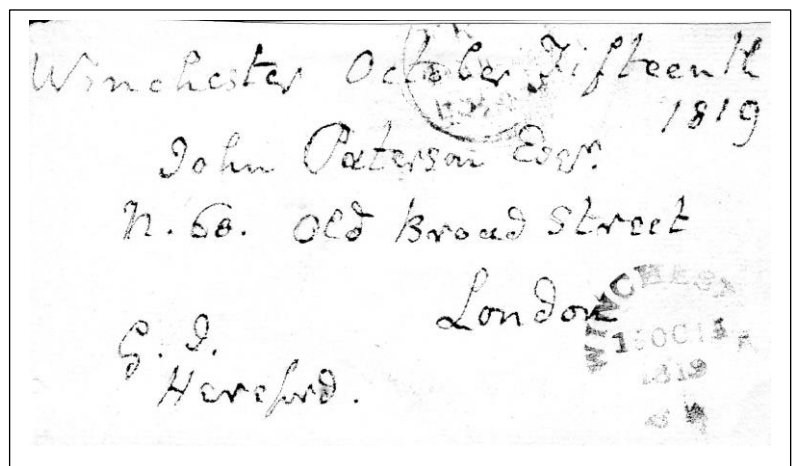 Winchester October Fifteenth
1819
John Paterson Esqr.
N. 60. Old Broad Street
London
G. I.
Hereford.
WINCHES
15 OC 15
1819